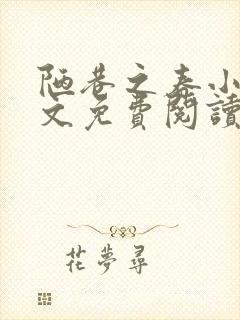 陋巷之春小
文免費閱讀
花夢尋